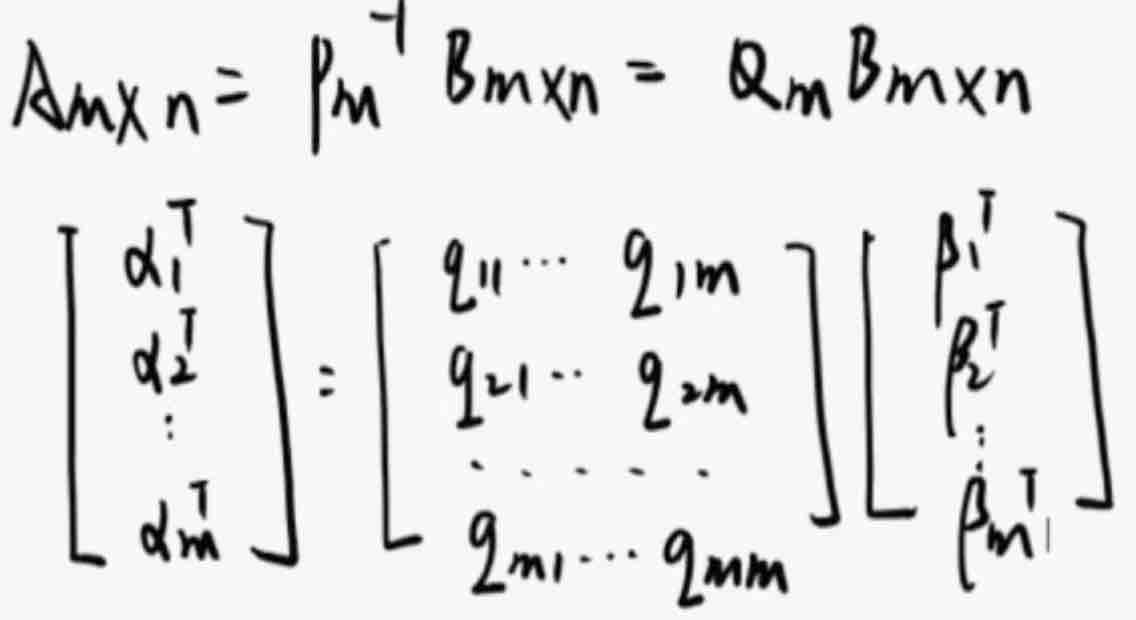 A_{m×n} = P_m^{-1} B_{m×n} = Q_m B_{m×n}
[α_1^T α_2^T ⋮ α_m^T] = [q_{11} ⋯ q_{1m} q_{21} ⋯ q_{2m} ⋯⋯ q_{m1} ⋯ q_{mm}] [β_1^T β_2^T ⋮ β_m^T]